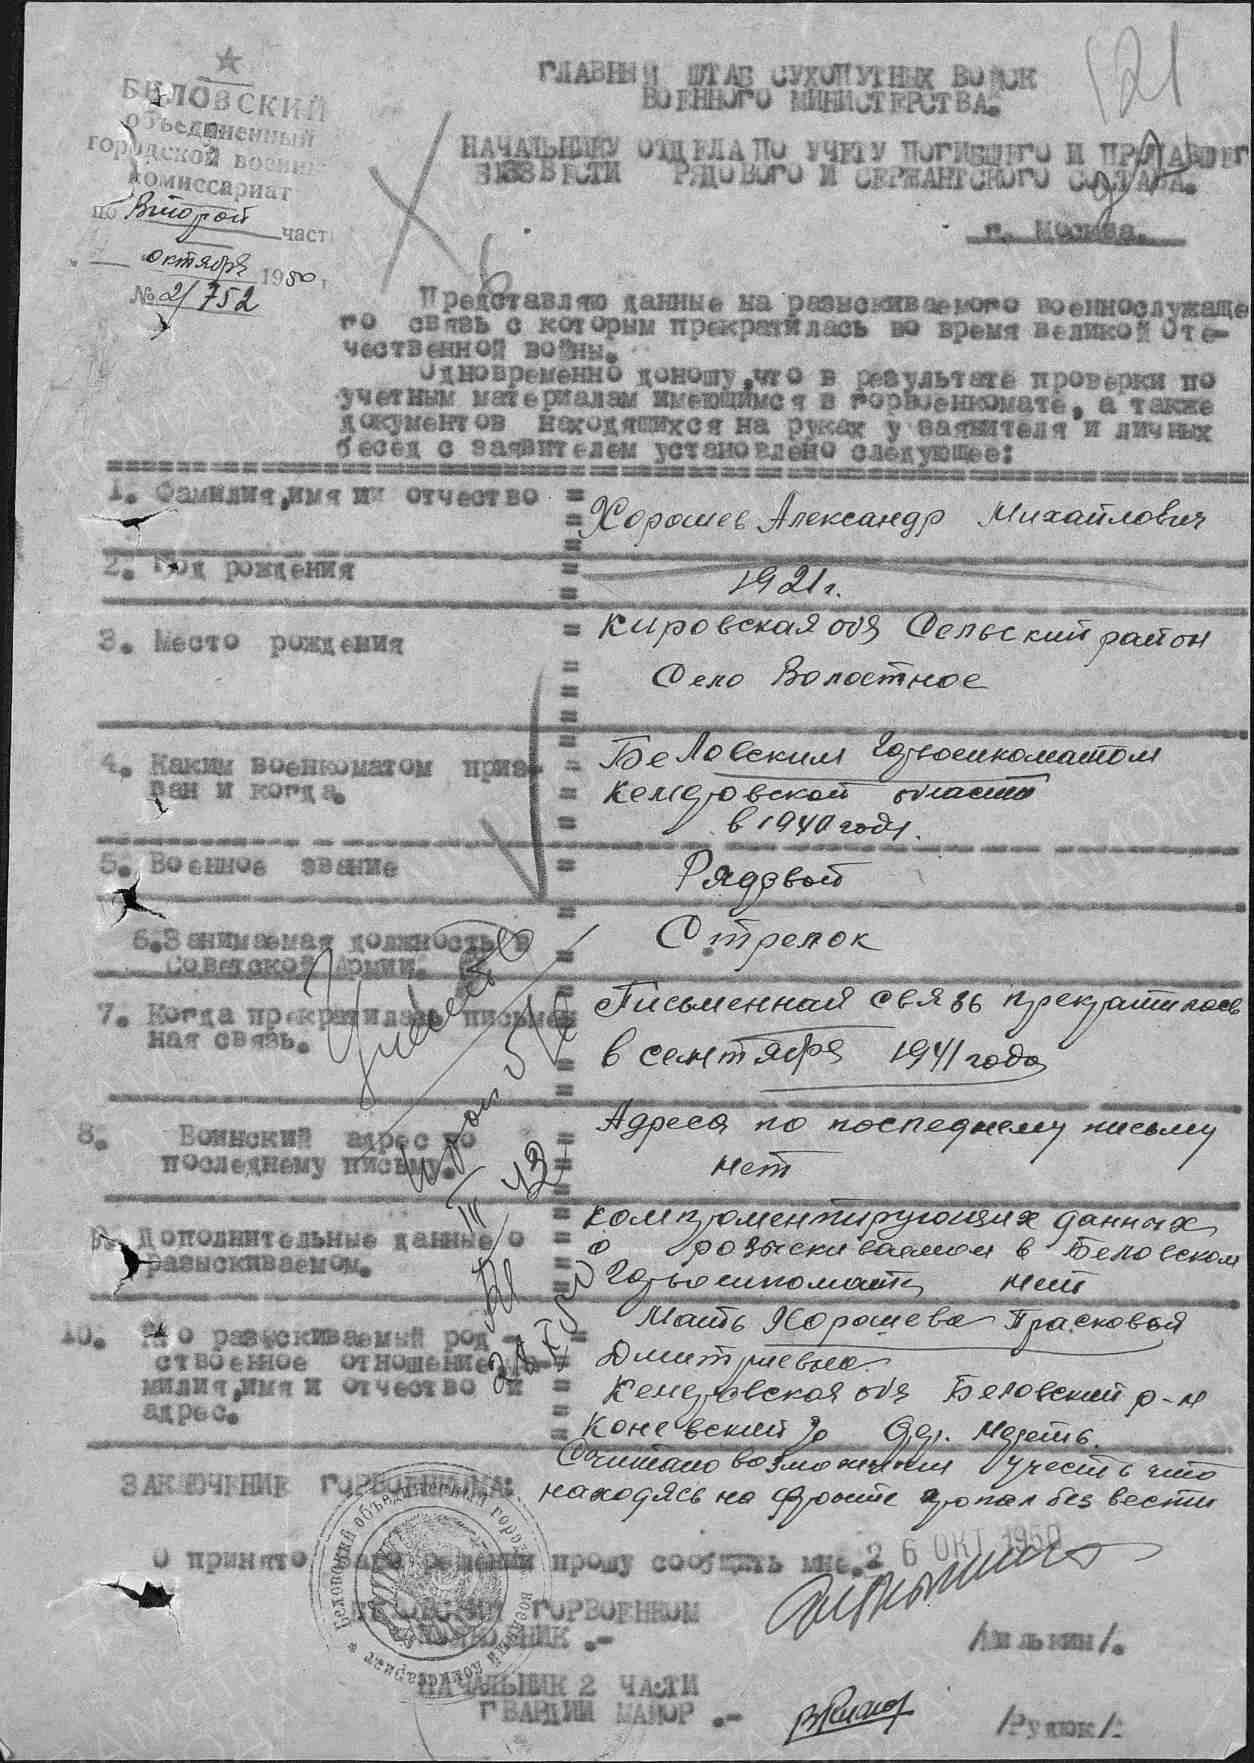 121
БЕЛОВСКИЙ
объединенный
городской военный
комиссариат
по Второй части
октября 1950 г.
№ 2/752
ГЛАВНЫЙ ШТАБ СУХОПУТНЫХ ВОЙСК
ВОЕННОГО МИНИСТЕРСТВА.
НАЧАЛЬНИКУ ОТДЕЛА ПО УЧЕТУ ПОГИБШЕГО И ПРОПАВШЕГ
БЕЗВЕСТИ РЯДОВОГО И СЕРЖАНТСКОГО СОСТАВА.
г. Москва.
Представляю данные на разыскиваемого военнослужаще
го связь с которым прекратилась во время великой Оте-
чественной войны.
Одновременно доношу, что в результате проверки по
учетным материалам имеющимся в горвоенкомате, а также
документов находящихся на руках у заявителя и личных
бесед с заявителем установлено следующее:
1. Фамилия, имя ии отчество = Хорошев Александр Михайлович
2. Год рождения = 1921 г.
3. Место рождения = Кировская обл Сельский район
Село Волостное
4. Каким военкоматом приз- = Беловским Горвоенкоматом
ван и когда. = Кемеровской области
в 1940 году.
5. Военное звание = Рядовой
6. Занимаемая должность в = Стрелок
Советской Армии.
7. Когда прекратилась письмен = Письменная связь прекратилась
ная связь. = в сентябре 1941 года
8. Воинский адрес по = Адреса по последнему письму
последнему письму. = нет
9. Дополнительные данные о = компроментирующих данных
разыскиваемом. = о розыскиваемом в Беловском
Горвоенкомате нет
10. Кто разыскиваемый род- = Мать Хорошева Прасковья
ственное отношение, фа- = Дмитриевна
милия, имя и отчество и = Кемеровская обл Беловский р-н
адрес. = Коневский
ЗАКЛЮЧЕНИЕ ГОРВОЕНКОМА: Считаю возможным учесть что
находясь на фронте пропал без вести
О принятом вами решении прошу сообщить мне.
26 ОКТ 1950
БЕЛОВСКИЙ ГОРВОЕНКОМ
ПОЛКОВНИК .- /Милькин/.
НАЧАЛЬНИК 2 ЧАСТИ
ГВАРДИИ МАЙОР .- /Рудюк/.
* Беловский объединенный городской военный комиссариат *